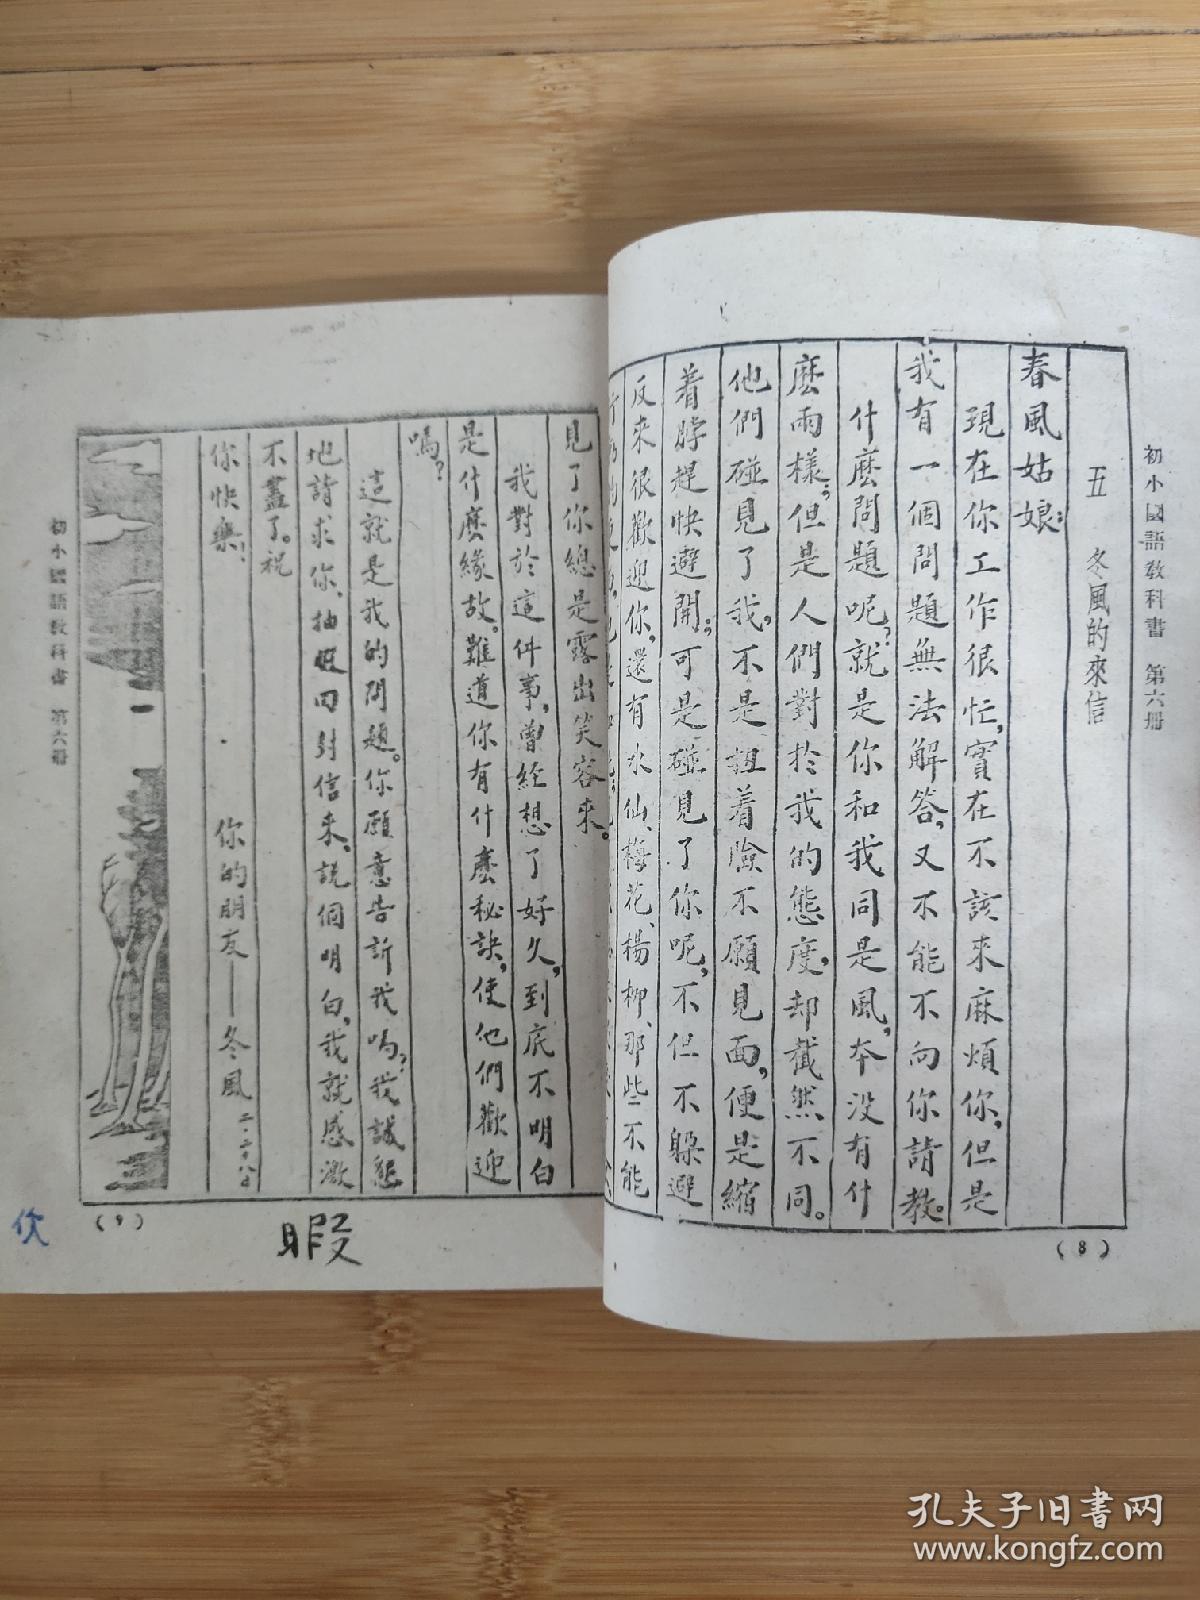 初小國語教科書 第六册
五 冬風的來信
春風姑娘：
現在你工作很忙，實在不該來麻煩你，但是
我有一個問題無法解答，又不能不向你請教。
什麽問題呢？就是你和我同是風，本没有什
麽兩樣；但是人們對於我的態度，却截然不同。
他們碰見了我，不是扭着臉不願見面，便是縮
着脖趕快避開；可是碰見了你呢，不但不躲避
反來很歡迎你，還有水仙、梅花、楊柳、那些不能
(8)
見了你總是露出笑容來。
我對於這件事，曾經想了好久，到底不明白
是什麽緣故。難道你有什麽秘訣，使他們歡迎
嗎？
這就是我的問題。你願意告訴我嗎？我誠懇
地請求你、抽暇回封信來、説個明白，我就感激
不盡了。祝
你快樂！
你的朋友—冬風 二·二十八
初小國語教科書 第六册
(9)
暇
孔夫子旧书网
www.kongfz.com